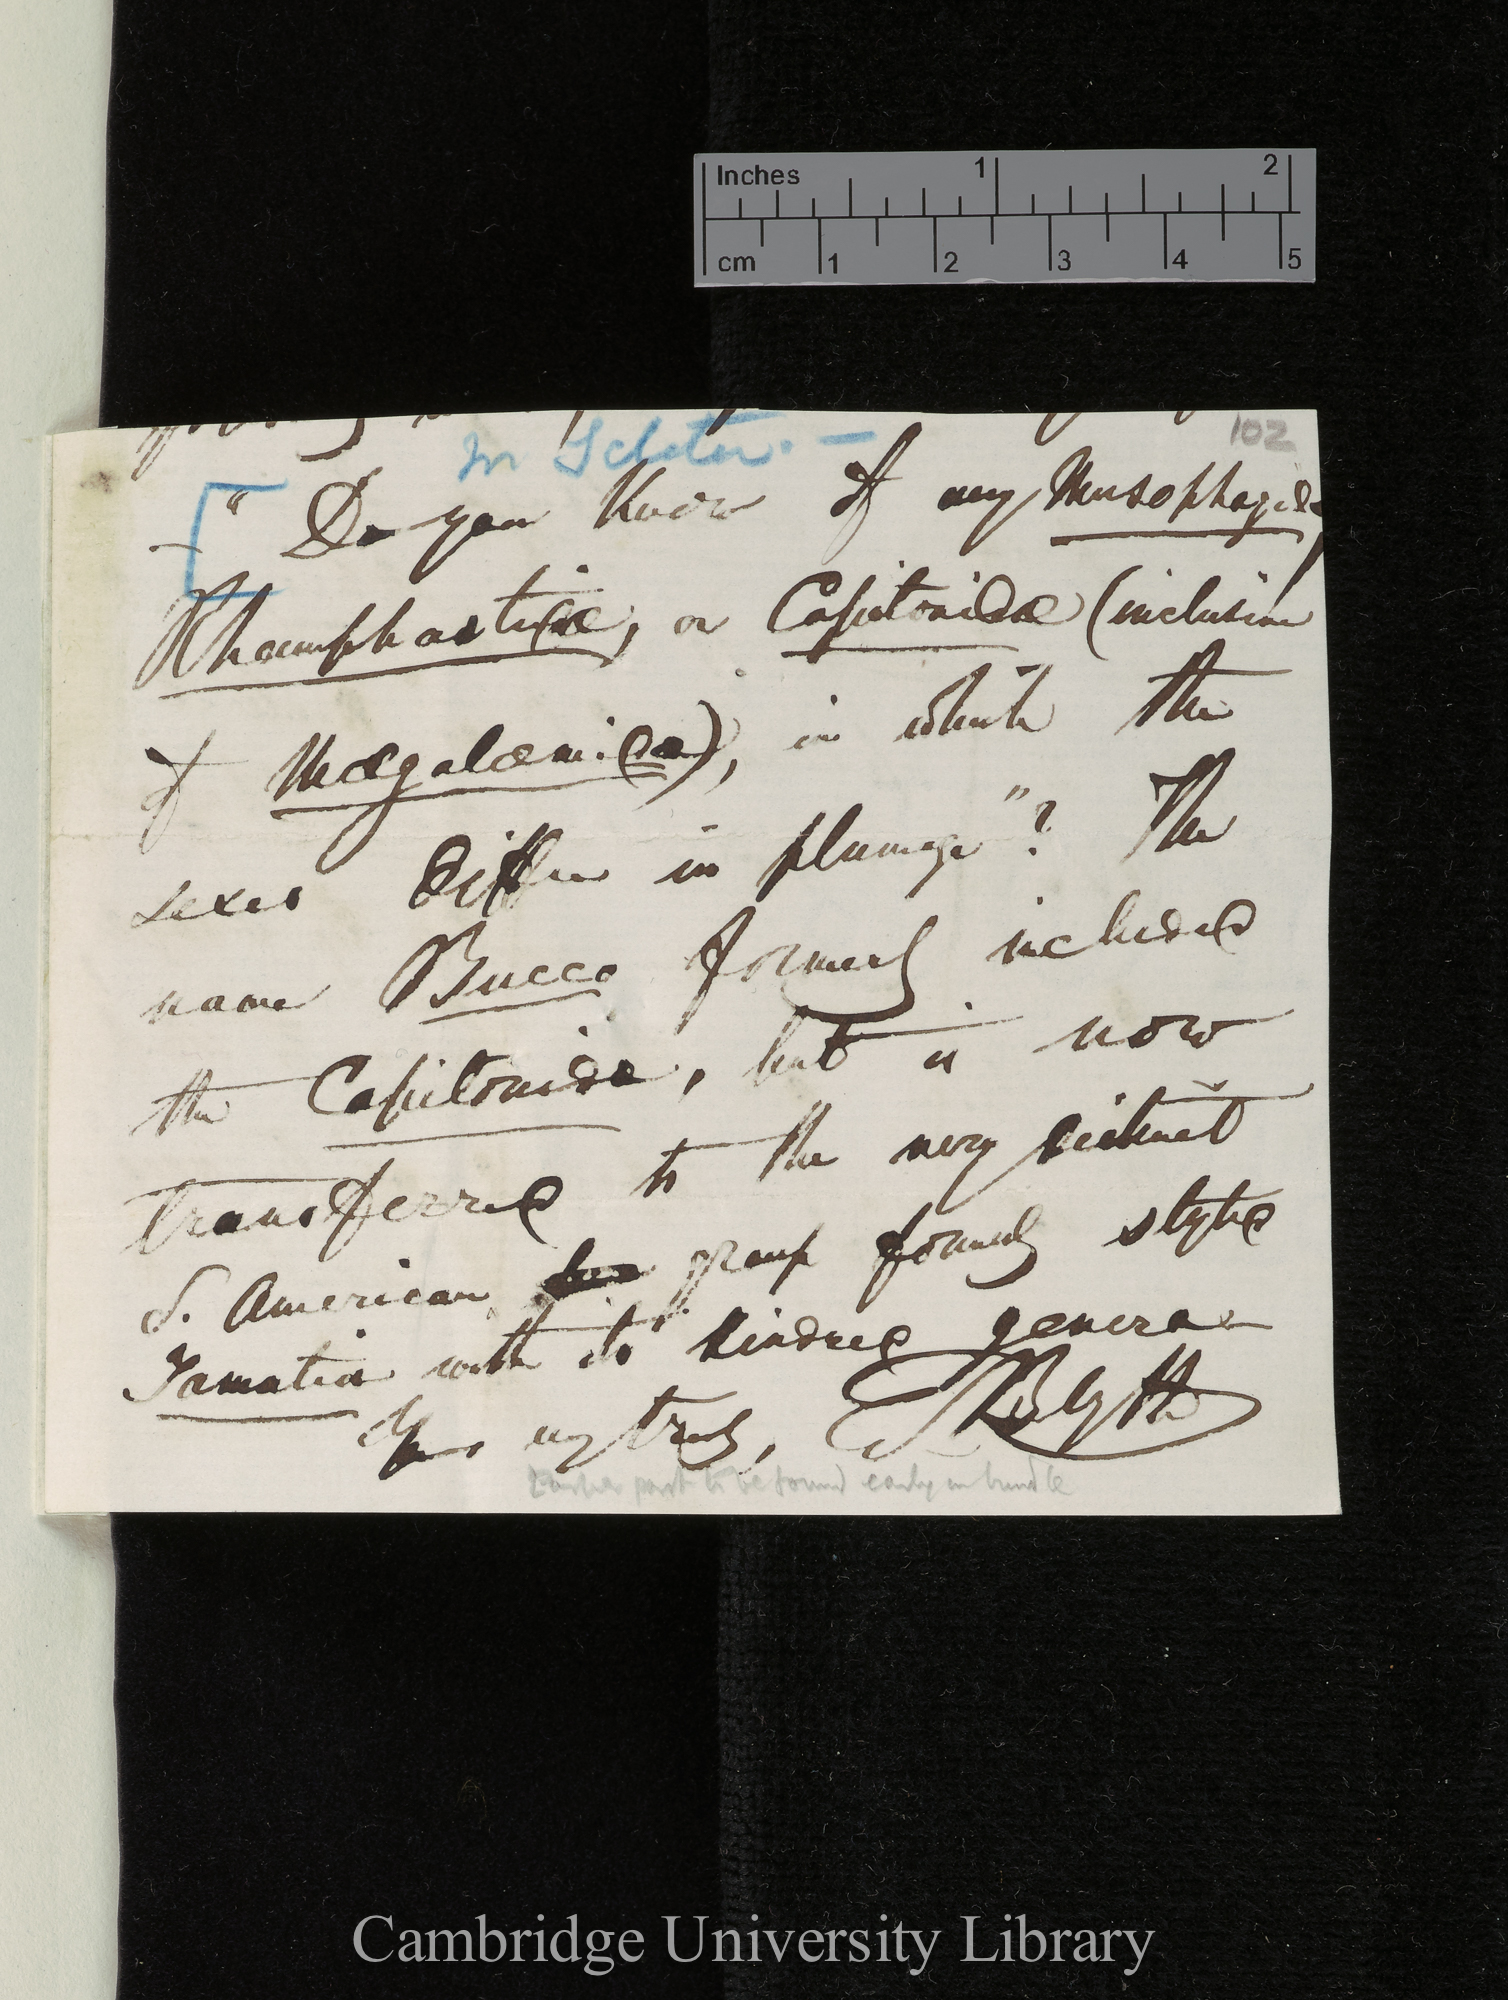 Inches 1 2
cm 1 2 3 4 5
102
Mr Sclater. —
— [" Do you know of any Musophagidæ,
Rhamphastidæ, or Capitonidæ (inclusive
of Mægalæmidæ), in which the
sexes differ in plumage"? The
name Bucco formerly included
the Capitonidæ, but is now
transferred to the very distinct
S. American group formerly styled
Tamatia with its kindred genera –
Yours very truly, E Blyth
Earlier part to be found early in bundle
Cambridge University Library